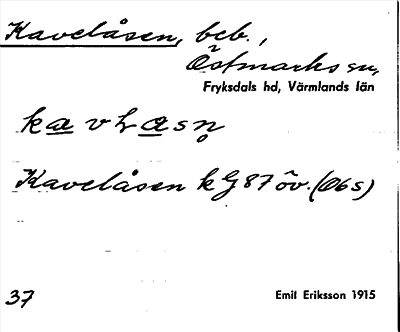 Kavelåsen, beb.,
Östmarks sn,
Fryksdals hd, Värmlands län
kavLasn̥
Kavelåsen kG 87 öv. (Obs)
37
Emil Eriksson 1915